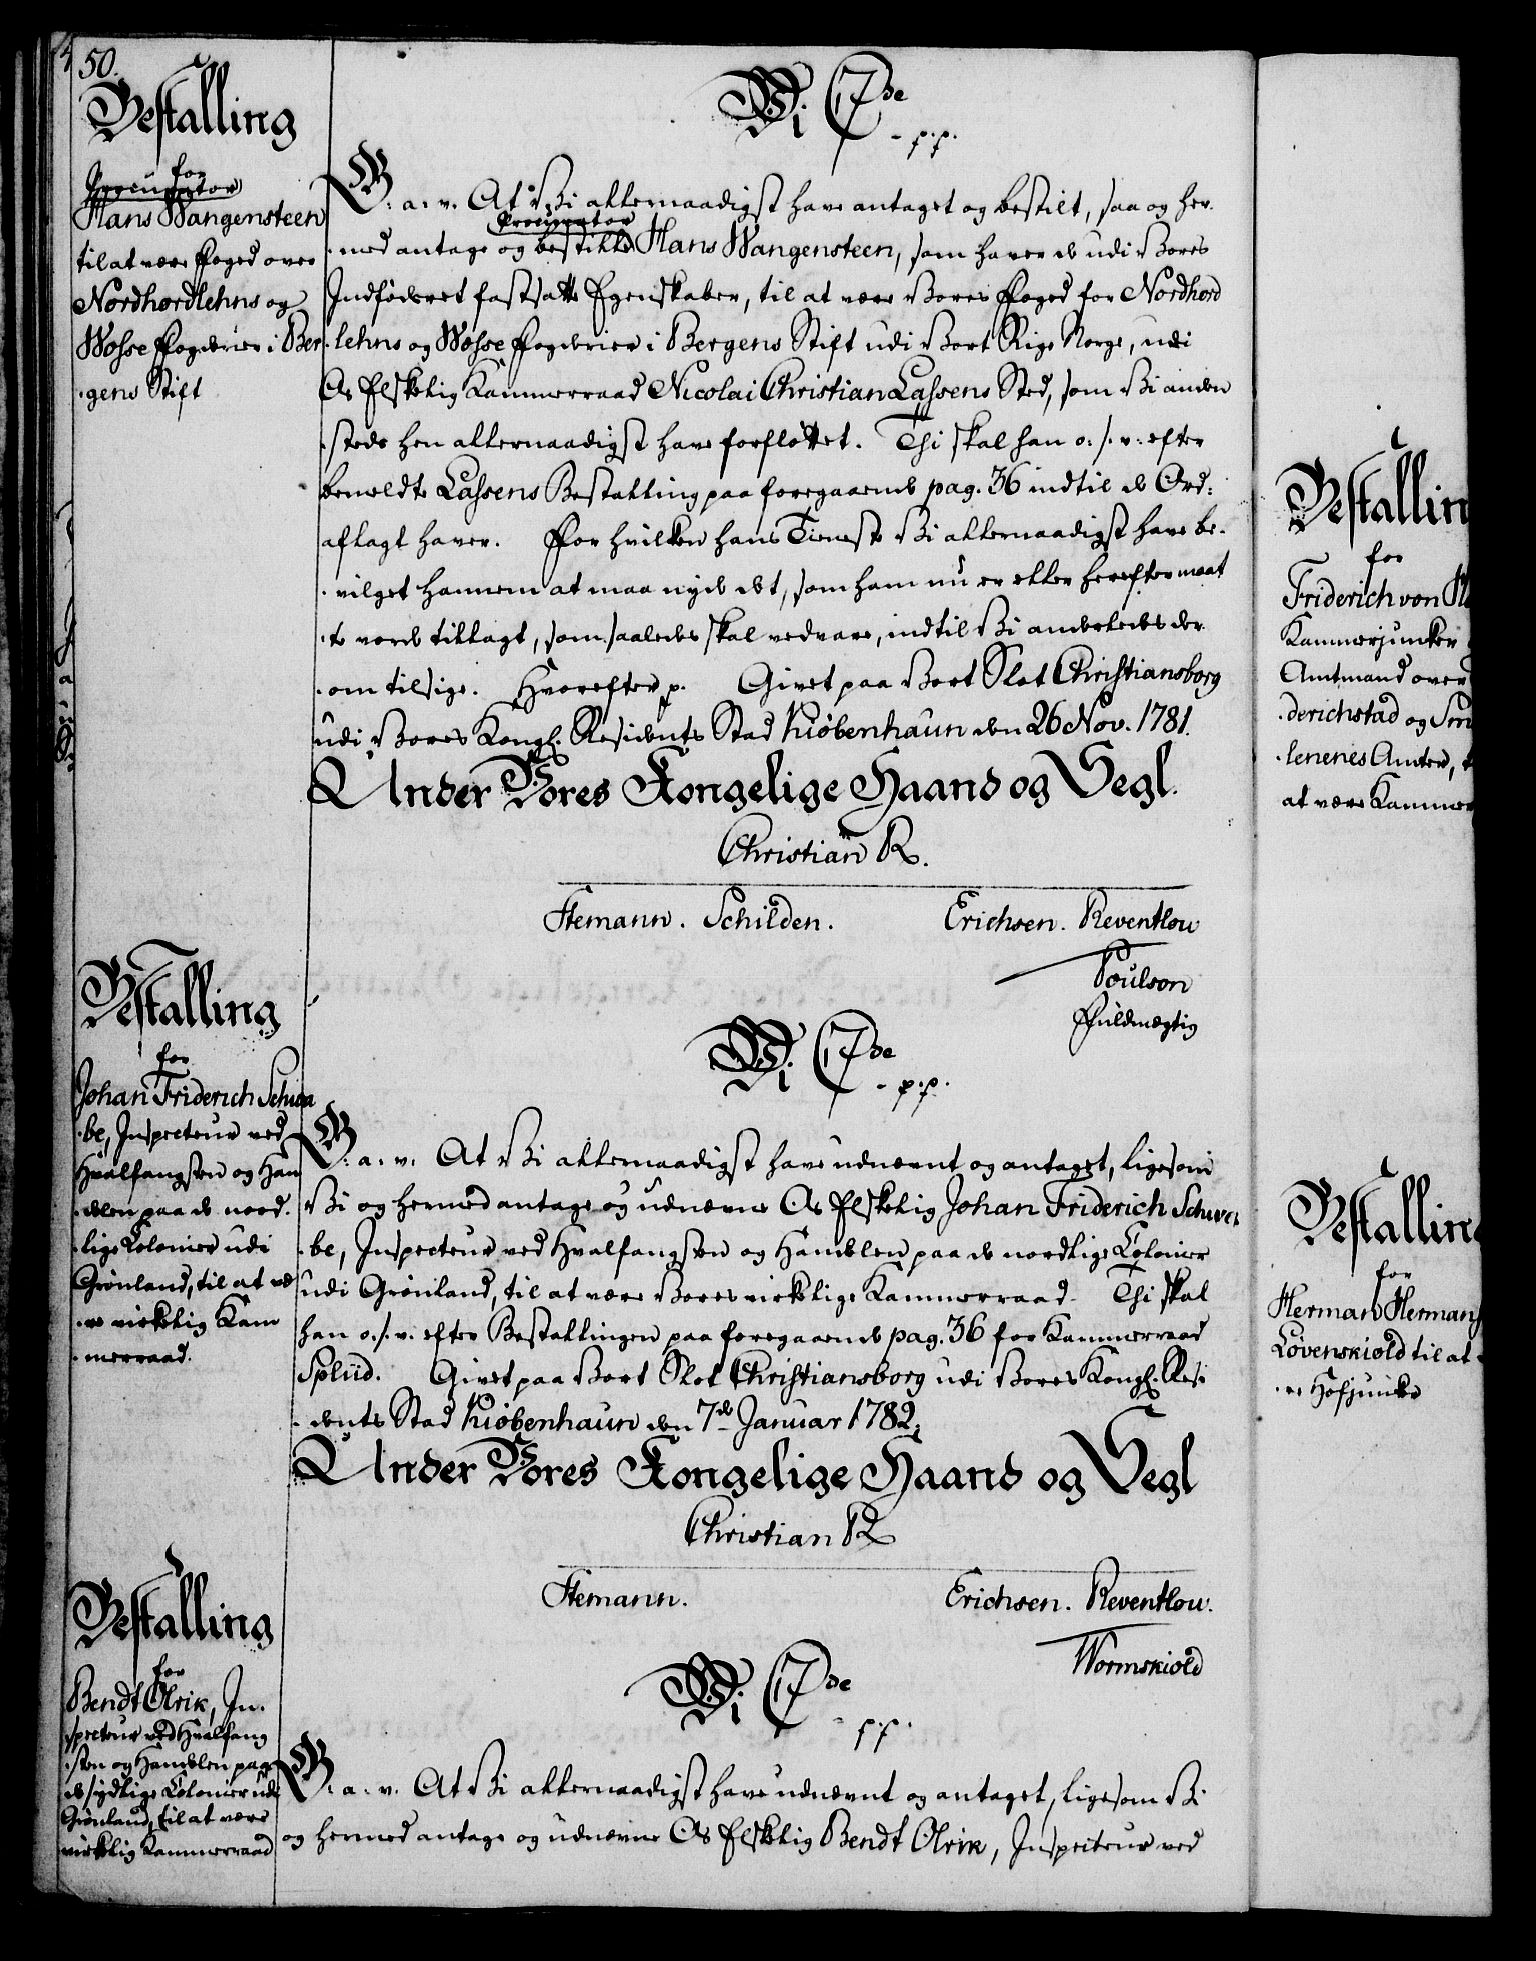 50.
Bestalling
for
Procurator
Hans Wangensteen
til at være Foged over
Nordhordlehns og
Wosse Fogderier i Ber-
-gens Stift
Vi C 7de
- p. p.
G. a. v. At Vi allernaadigst have antaget og bestilt, saa og her-
Procurator
-med antage og bestille Hans Wangensteen, som haver de udi Vores
Indføderet fastsatte Egenskaber, til at være Vores Foged for Nordhord
-lehns og Wosse Fogderier i Bergens Stift udi Vort Rige Norge, udi
Os Elskelig Kammerraad Nicolai Christian Lassens Sted, som Vi anden
-steds hen allernaadigst have forfløttet. Thi skal han o. s. v. efter
bemeldte Lassens Bestalling paa foregaaende pag. 36 indtil de Ord:
aflagt haver. For hvilken hans Tieneste Vi allernaadigst have be-
-vilget hannem at maa nyde det, som ham nu er eller herefter maat
-te vorde tillagt, som saaledes skal vedvare, indtil Vi anderledes der-
-om tilsige. Hvorefter p. Givet paa Vort Slot Christiansborg
udi Vores Kongl. Residents Stad Kiøbenhaun den 26 Nov. 1781.
Under Vores Kongelige Haand og Segl.
Christian R.
Stemann. Schilden. Erichsen. Reventlou
Poulson
Fuldmægtig
Bestalling
for
Johan Friderich Schwa
-be, Inspecteur ved
Hvalfangsten og Han
-delen paa de nord-
-lige Colonier udi
Grønland, til at væ
-re virkelig Kam
-merraad.
Vi C 7de
- p. p.
G. a. v. At Vi allernaadigst have udnævnt og antaget, ligesom
Vi og hermed antage og udnævne Os Elskelig Johan Friderich Schwa
-be, Inspecteur ved Hvalfangsten og Handelen paa de nordlige Colonier
udi Grønland, til at være Vores virkelige Kammerraad. Thi skal
han o. s. v. efter Bestallingen paa foregaaende pag. 36 for Kammerraad
Spliid. Givet paa Vort Slot Christiansborg udi Vores Kongl. Resi
-dents Stad Kiøbenhaun den 7de Januar 1782.
Under Vores Kongelige Haand og Segl
Christian R
Stemann. Erichsen. Reventlou.
Wormskiold
Bestalling
for
Bendt Olrik, In-
-specteur ved Hvalfang
-sten og Handelen paa
de sydlige Colonier udi
Grønland, til at være
virkelig Kammerraad
Vi C 7de
- p. p.
G. a. v. At Vi allernaadigst have udnævnt og antaget, ligesom Vi
og hermed antage og udnævne Os Elskelig Bendt Olrik, Inspecteur ved
Bestallin
for
Friderich von
Kammerjunker
Amtmand over
-derichstad og Sm
-lenenes Amter,
at være Kammer
Bestalling
for
Herman Herman
Løvenskiold til at
-re Hofjunker